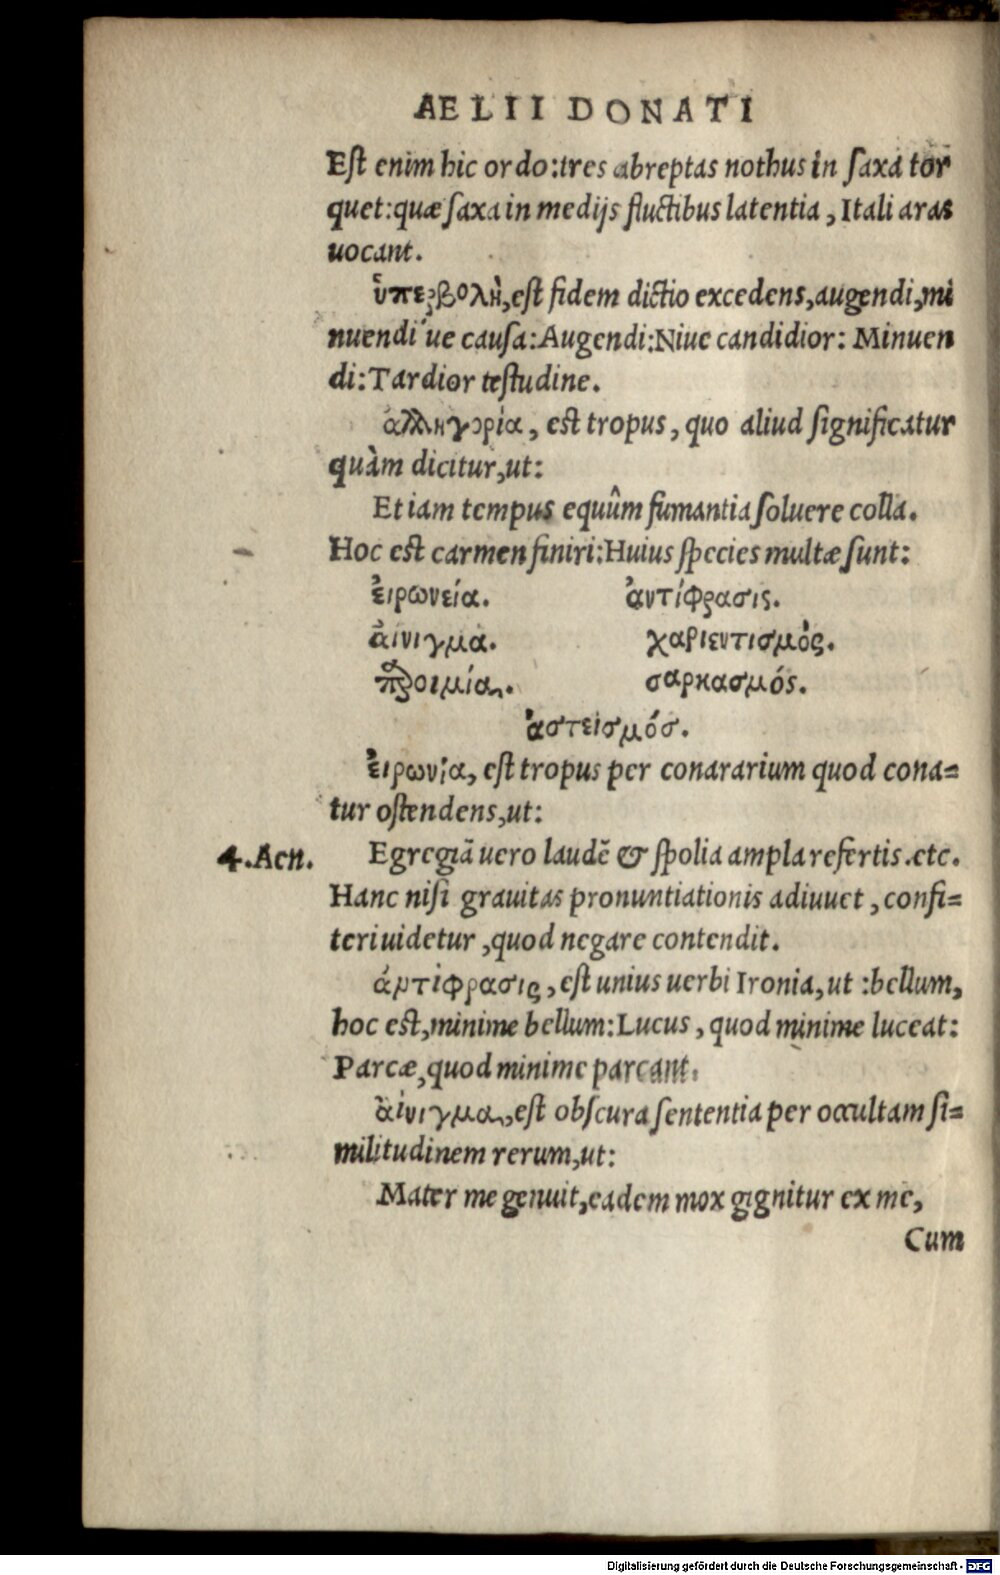 AELII DONATI
Est enim hic ordo:tres abreptas nothus in saxa tor
quet:quæ saxa in medijs fluctibus latentia, Itali aras
uocant.
ὑπερβολὴ, est fidem dictio excedens, augendi, mi
nuendi ue causa: Augendi: Niue candidior: Minuen
di: Tardior testudine.
ἀλληγορία, est tropus, quo aliud significatur
quàm dicitur, ut:
Et iam tempus equûm fumantia soluere colla.
Hoc est carmen finiri: Huius species multæ sunt:
ἐιρωνεία. ἀντίφρασις.
ἀίνιγμα. χαριεντισμὸς.
παροιμία. σαρκασμός.
ἀστεισμόσ.
ἐιρωνία, est tropus per conararium quod cona=
tur ostendens, ut:
4. Aen. Egregiā uero laudē & spolia ampla refertis. etc.
Hanc nisi grauitas pronuntiationis adiuuet, confi=
teri uidetur, quod negare contendit.
ἀντίφρασις, est unius uerbi Ironia, ut: bellum,
hoc est, minime bellum: Lucus, quod minime luceat:
Parcæ, quod minime parcant.
ἀίνιγμα, est obscura sententia per occultam si=
militudinem rerum, ut:
Mater me genuit, eadem mox gignitur ex me,
Cum
Digitalisierung gefördert durch die Deutsche Forschungsgemeinschaft - DFG